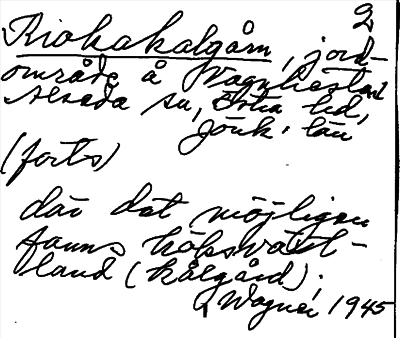 2
Riokakalgårn, jord-
område å Vagnhester
Alseda sn, Östra hd,
Jönk. län
(forts)
där det möjligen
fanns köksväxt-
land (kålgård).
Wagner 1945